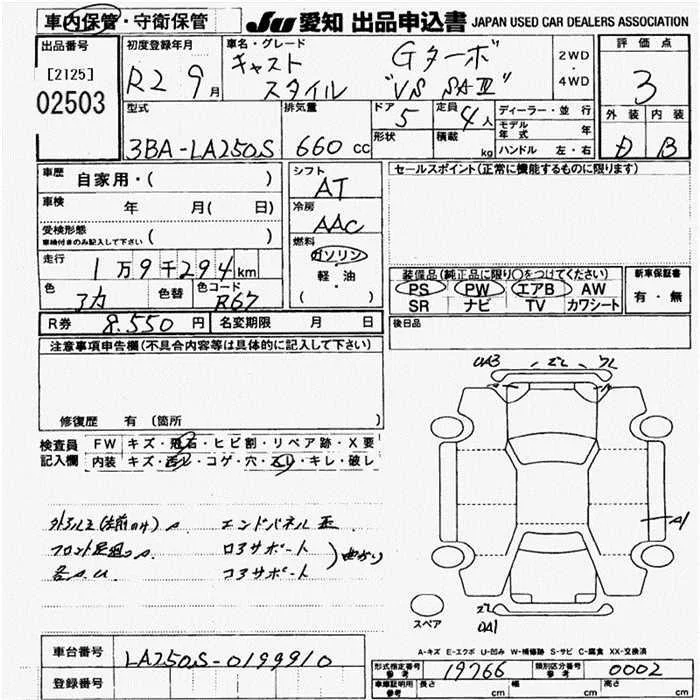 車内保管・守衛保管
JU 愛知 出品申込書 JAPAN USED CAR DEALERS ASSOCIATION
出品番号
[2125]
02503
初度登録年月
R2 9月
車名・グレード
キャスト Gターボ
スタイル "VS SAⅢ"
2WD
・
4WD
評価点
3
外装 内装
D B
型式
3BA-LA250S
排気量
660 cc
ドア 5
定員 4人
形状
積載 kg
ディーラー・並行
モデル年式 年
ハンドル 左・右
車歴 自家用・( )
車検 年 月( 日)
受検形態
車検付きのみ記入して下さい ( )
走行 1万9千294km
色 色替 色コード R67
R券 8.550円 名変期限 月 日
シフト
AT
冷房
AAC
燃料
ガソリン
・
軽・油
( )
セールスポイント(正常に機能するものに限ります)
装備品(純正品に限り○をつけてください)
PS PW エアB AW
SR ナビ TV カワシート
新車保証書
有・無
後日品
注意事項申告欄(不具合内容等は具体的に記入して下さい)
修復歴 有 (箇所 )
検査員記入欄
FW キズ・飛石・ヒビ割・リペア跡・X要
内装 キズ・汚レ・コゲ・穴・スレ・キレ・破レ
エンドパネル
ロアサポート
コアサポート
曲がり
A1
スペア
A-キズ E-エクボ U-凹み W-補修跡 S-サビ C-腐食 XX-交換済
車台番号 LA250S-0199910
登録番号
形式指定番号 参考 19766
類別区分番号 参考 0002
車庫証明用 参考 長さ cm 幅 cm 高さ cm